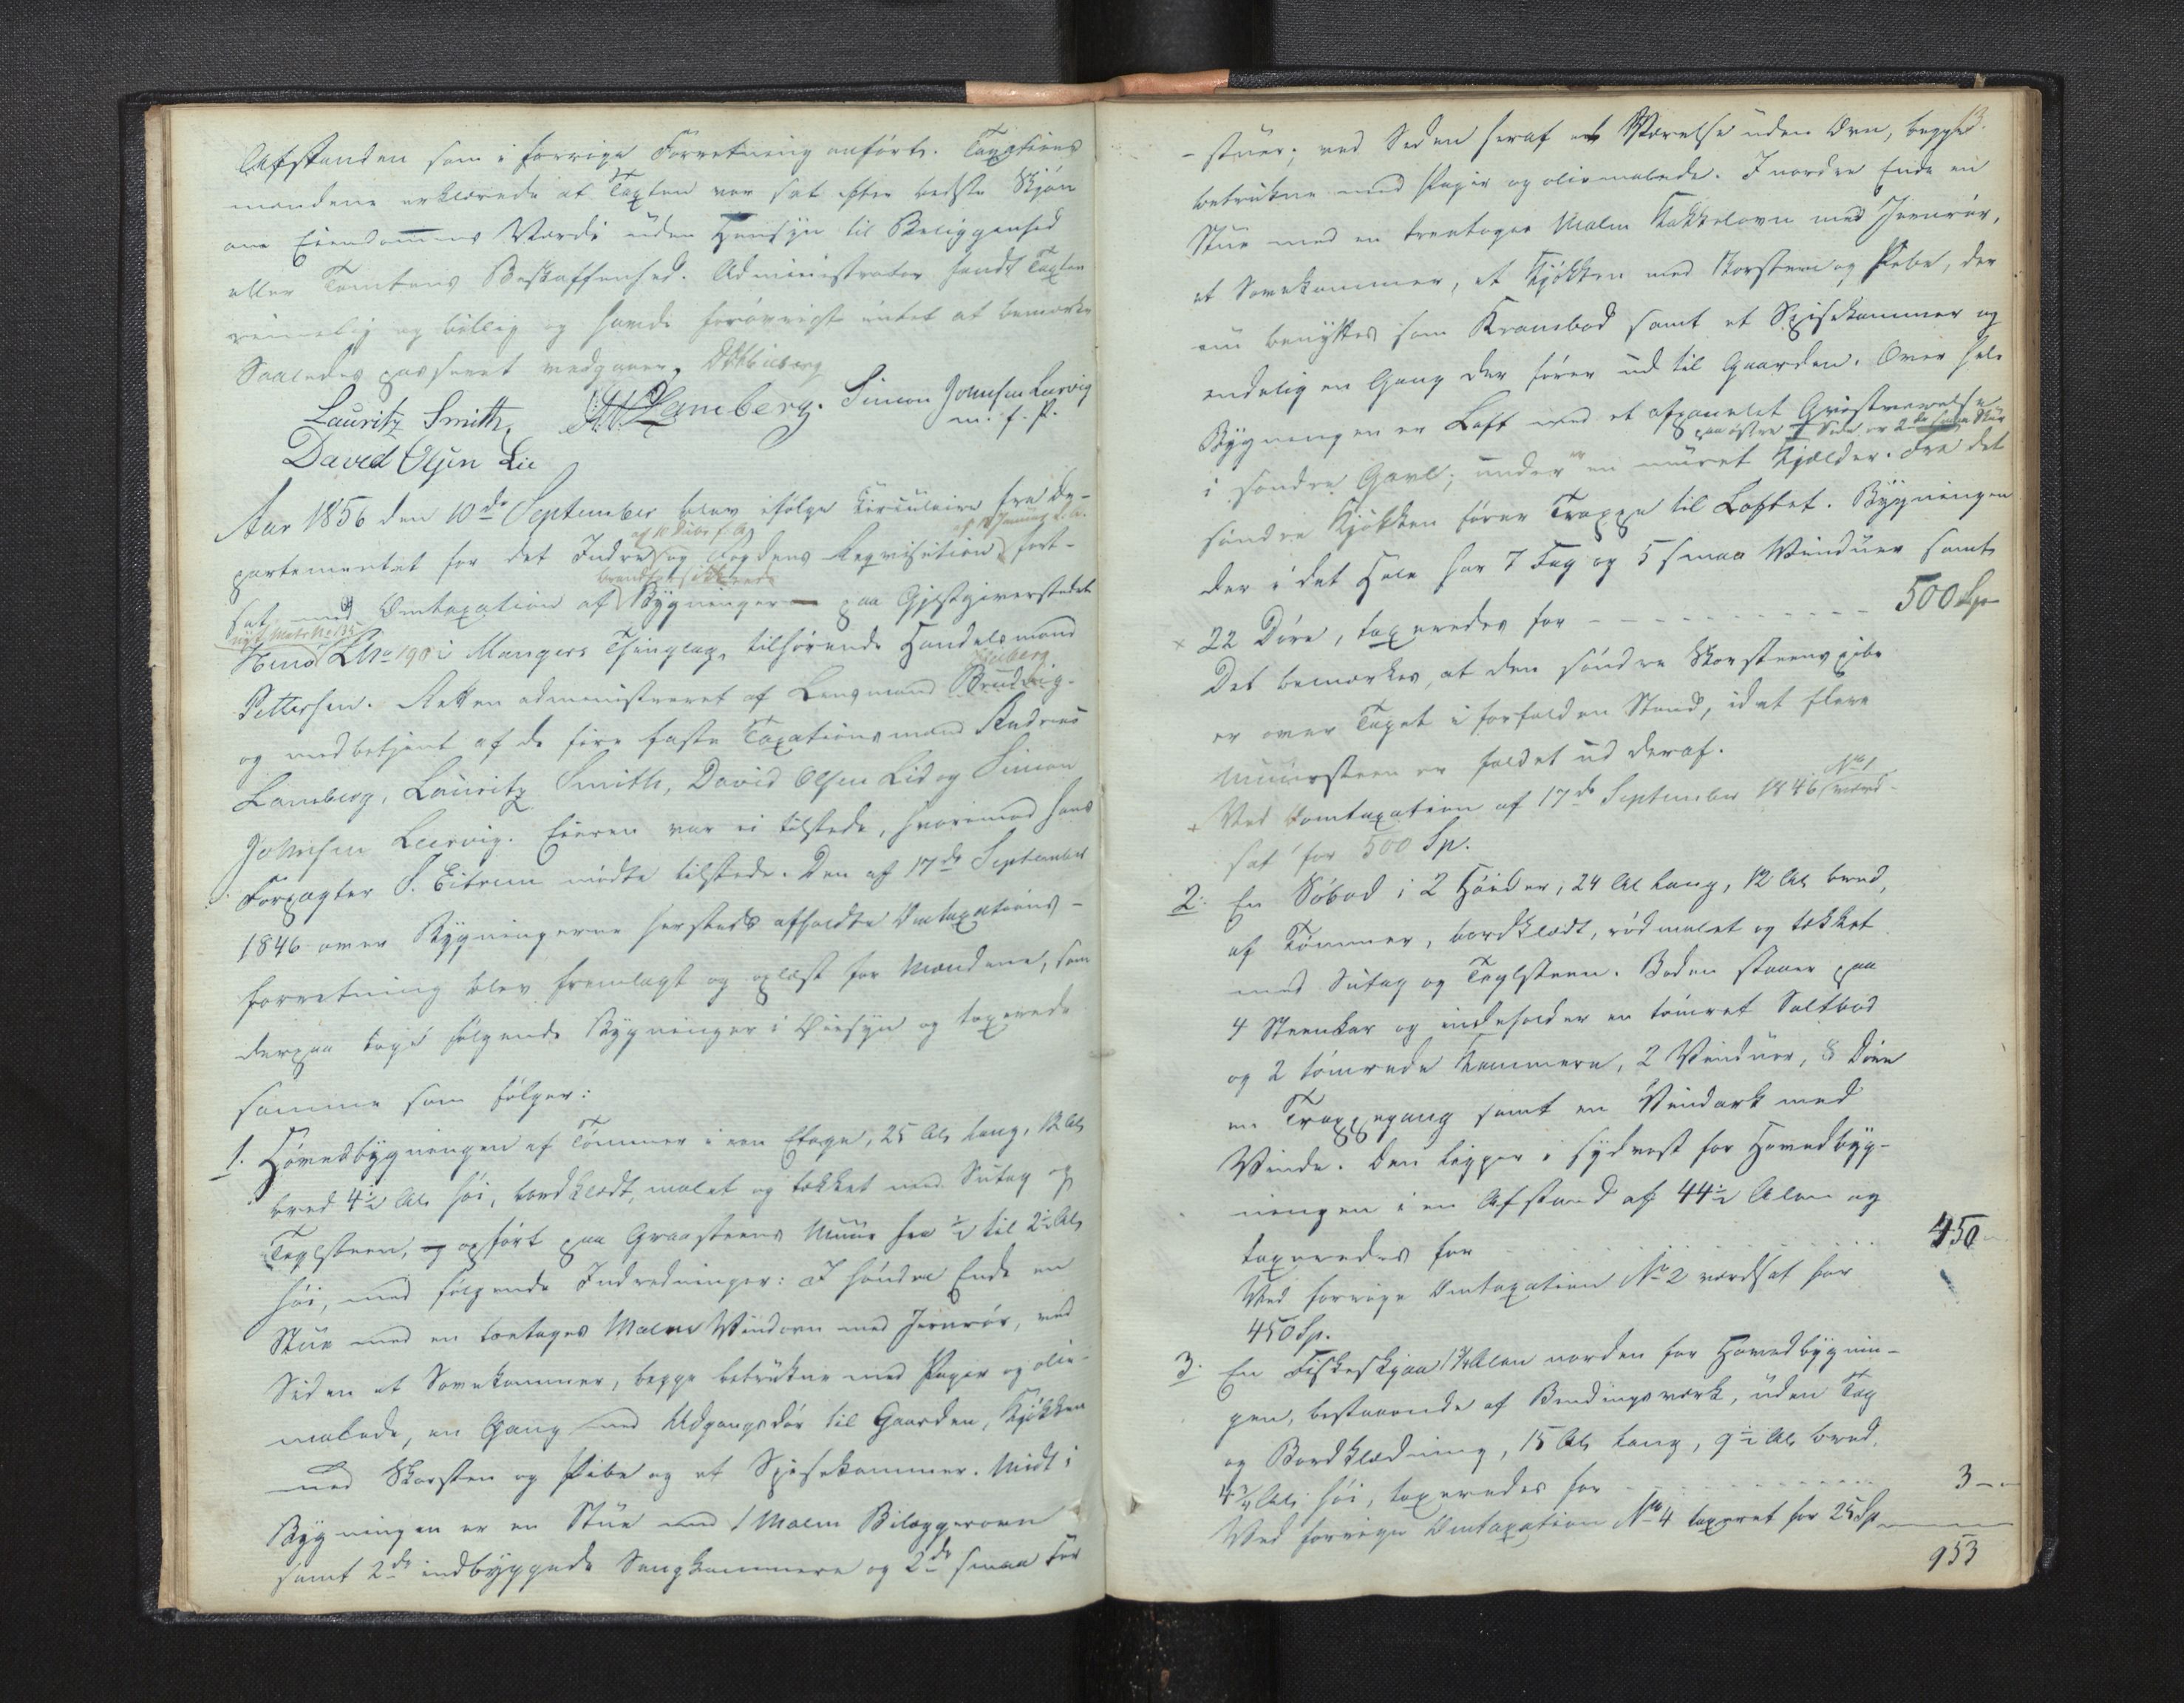 Afstanden som i forrige Forretning anført. Taxations
mændene erklærede at Taxten var sat efter bedste Skjøn
om Eiendommens Værdi uden Hensyn til Beliggenhed
eller Tomtens Beskaffenhed. Administrator fandt Taxten
rimelig og billig og havde forøvrigt intet at bemærke
Saaledes passeret medgaaer.
Lauritz Smith, Lamberg. Simon Johnsen Lervig
m. f. P.
David Olsen Lie
Aar 1856 den 10de September blev ifølge Circulaire fra De-
partementet for det Indre og Fogdens Reqvisition fort-
brandforsikkrede
sat med Omtaxation af Bygninger paa Gjestgiverstedet
nyt Matr No 135
LNo 190 i Mangers Thinglag, tilhørende Handelsmand
Pettersen. Retten administreret af Lensmand
og medbetjent af de fire faste Taxationsmænd Andreas
Lamberg, Lauritz Smith, David Olsen Lid og Simon
Johnsen Lervig. Eieren var ei tilstede, hvorimod hans
Forpagter S. Eitrem mødte tilstede. Den af 17de September
1846 over Bygningerne hersteds afholdte Omtaxations-
forretning blev fremlagt og oplæst for Mændene, som
derpaa toge følgende Bygninger i Øiesyn og taxerede
samme som følger:
1. Hovedbygningen af Tømmer i een Etage, 25 Al. lang, 12 Al.
bred 4½ Al. høi, bordklædt, malet og tækket med Sutag og
Teglsteen, opført paa Graasteens Muur fra ½ til 2½ Al.
høi, med følgende Indredninger: I søndre Ende en
Stue med en toetages Malm Vindovn med Jernrør, ved
Siden et Sovekammer, begge betrukne med Papir og olie-
malede, en Gang med Udgangsdør til Gaarden, Kjøkken
med Skorsten og Pibe og et Spisekammer. Midt i
Bygningen er en Stue med 1 Malm Bilæggerovn
samt 2de indbyggede Sengkammere og 2de smaa For
13.
-stuer; ved Siden heraf et Værelse uden Ovn, begge
betrukne med Papir og oliemalede. I nordre Ende en
Stue med en treetages Malm Kakkelovn med Jernrør,
et Sovekammer, et Kjøkken med Skorsten og Pibe, der
nu benyttes som Krambod samt et Spisekammer og
endelig en Gang der fører ud til Gaarden. Over hele
Bygningen er Loft med et afpanelet Qvistværelse
paa østre Side er 2de
i søndre Gavl; under er en muret Kjælder. Fra det
søndre Kjøkken fører Trappe til Loftet. Bygningen
der i det Hele har 7 Fag og 5 smaa Vinduer samt
22 Døre, taxeredes for - - - - - - - - - - 500 Sp
Det bemærkes, at den søndre Skorsteenspibe
er over Taget i forfalden Stand, idet flere
Muursteen er faldet ud deraf.
No 1
Ved Omtaxation af 17de September 1846 værd-
sat for 500 Sp.
2. En Søbod i 2 Høider, 24 Al. lang, 12 Al. bred,
af Tømmer, bordklædt, rødmalet og tækket
med Sutag og Teglsteen. Boden staaer paa
4 Steenkar og indeholder en tømret Saltbod
og 2 tømrede Kammere, 2 Vinduer, 8 Døre
en Trappegang samt en Vindark med
Vinde. Den ligger i sydvest for Hovedbyg-
ningen i en Afstand af 44½ Alen og
taxeredes for - - - - - - - - - - 450
Ved forrige Omtaxation No 2 værdsat for
450 Sp.
3. En Fiskeskjaa Alen norden for Hovedbygnin-
gen, bestaaende af Bindingsværk, uden Tag
og Bordklædning, 15 Al. lang, 9½ Al. bred,
4¾ Al. høi, taxeredes for - - - - - - - - 3 -
Ved forrige Omtaxation No 4 taxeret for 25 Sp
953